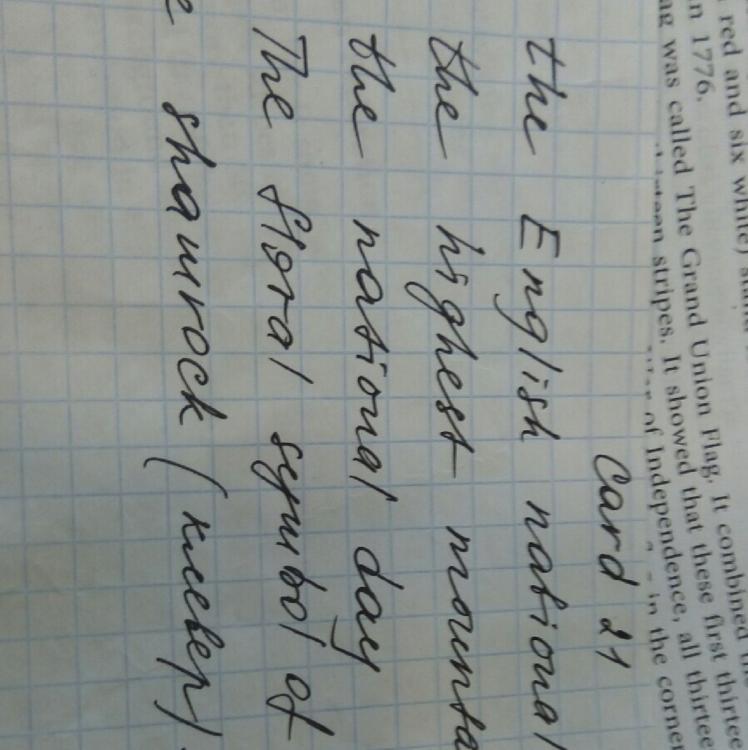 red and six white)
n 1776.
ag was called The Grand Union Flag. It combined the
stripes. It showed that these first thirtee
of Independence, all thirtee
in the corne
Card 21
the English national
the highest mounta
the national day
The floral symbol of
e shamrock (клевер)